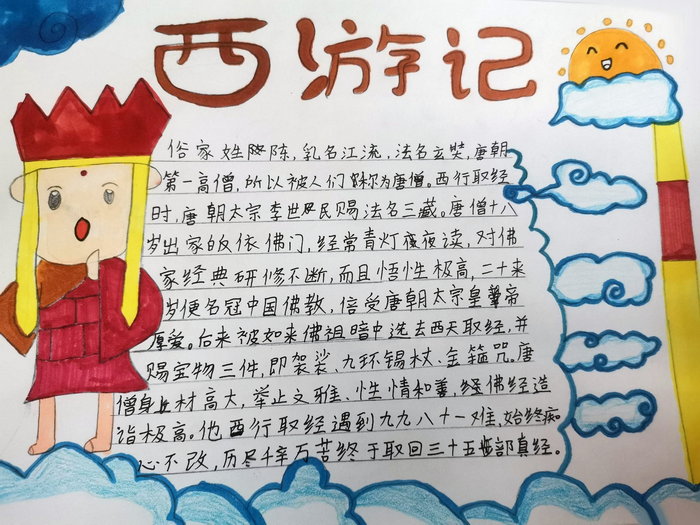 西游记
俗家姓陈,乳名江流,法名玄奘,唐朝
第一高僧,所以被人们称为唐僧。西行取经
时,唐朝太宗李世民赐法名三藏。唐僧十八
岁出家皈依佛门,经常青灯夜夜读,对佛
家经典研修不断,而且悟性极高,二十来
岁便名冠中国佛教,倍受唐朝太宗皇帝
厚爱。后来被如来佛祖暗中选去西天取经,并
赐宝物三件,即袈裟、九环锡杖、金箍咒。唐
僧身材高大,举止文雅、性情和善,经佛经造
诣极高。他西行取经遇到九九八十一难,始终痴
心不改,历尽千辛万苦终于取回三十五部真经。